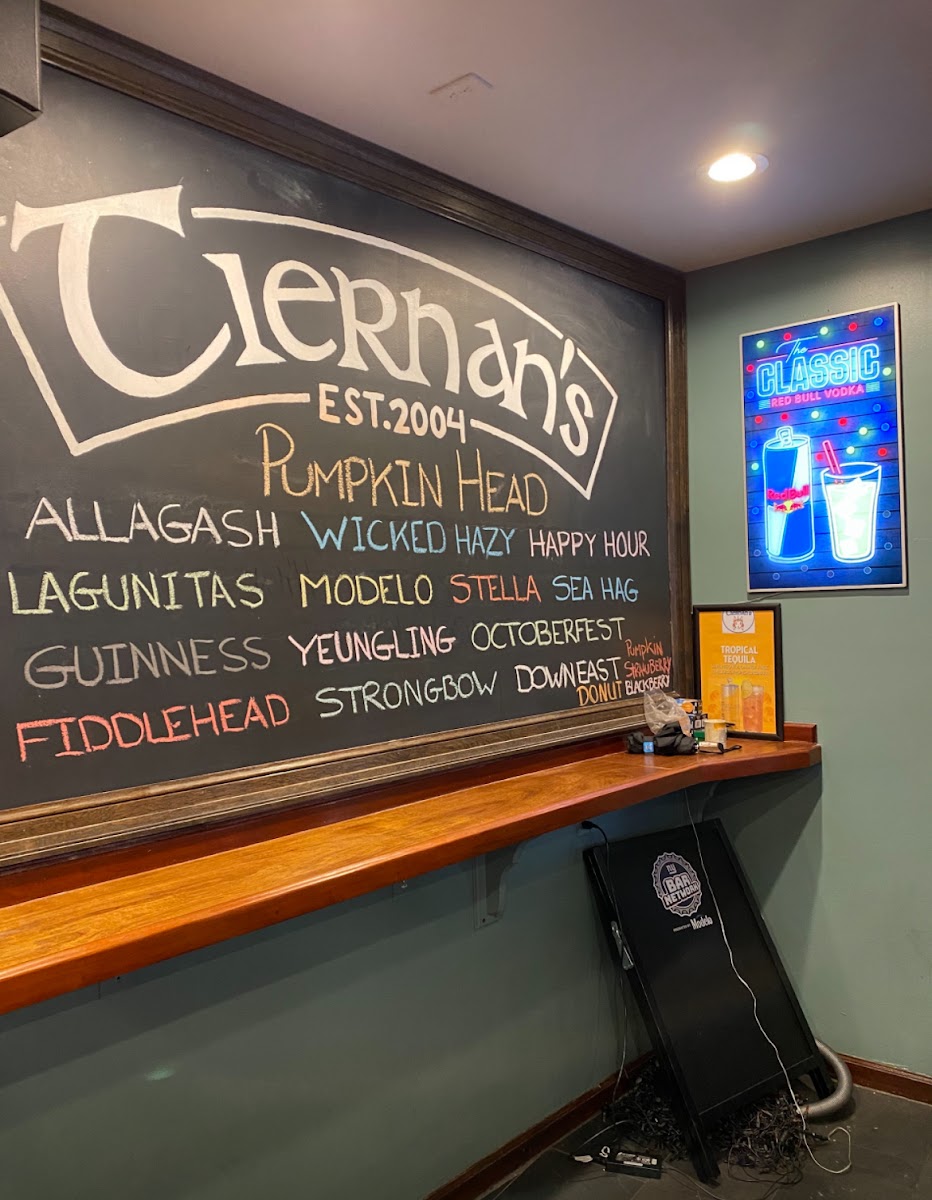 Tiernan's
EST.2004
PUMPKIN HEAD
ALLAGASH WICKED HAZY HAPPY HOUR
LAGUNITAS MODELO STELLA SEA HAG
GUINNESS YEUNGLING OCTOBERFEST
FIDDLEHEAD STRONGBOW DOWNEAST
PUMPKIN
STRAWBERRY
DONUT BLACKBERRY
The
CLASSIC
RED BULL VODKA
Red Bull
TROPICAL
TEQUILA
BAR
NETWORK
Modelo